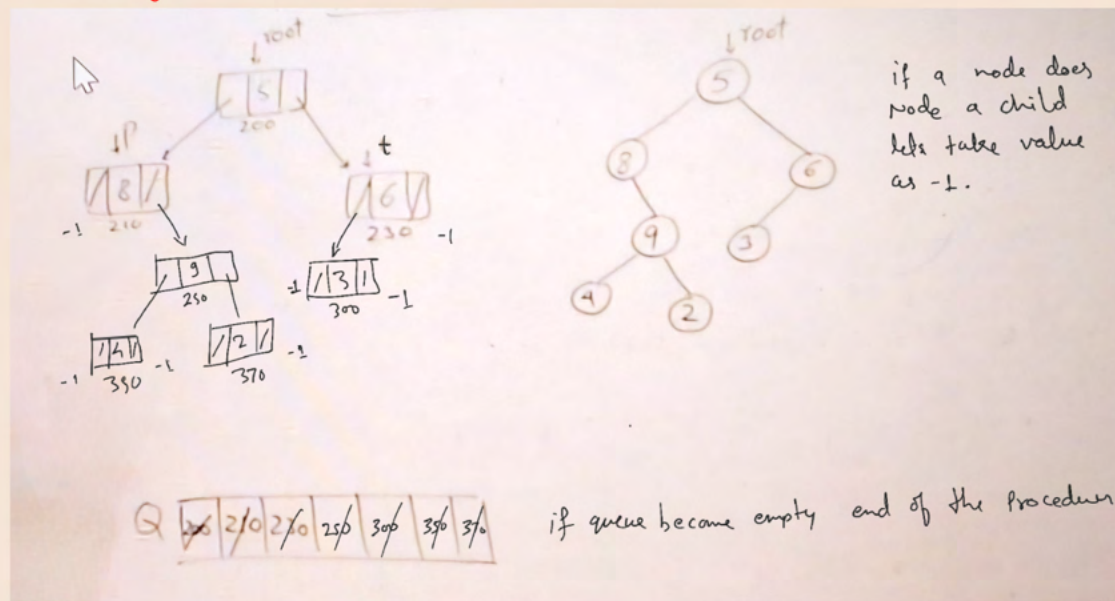 root
5
200
P
8
-1
210
t
6
230
-1
9
250
-1
3
300
-1
-1
4
350
-1
2
370
-1
root
5
8
6
9
3
4
2
if a node does
Node a child
lets take value
as -1.
Q 200 210 230 250 300 350 370
if queue become empty end of the Procedure